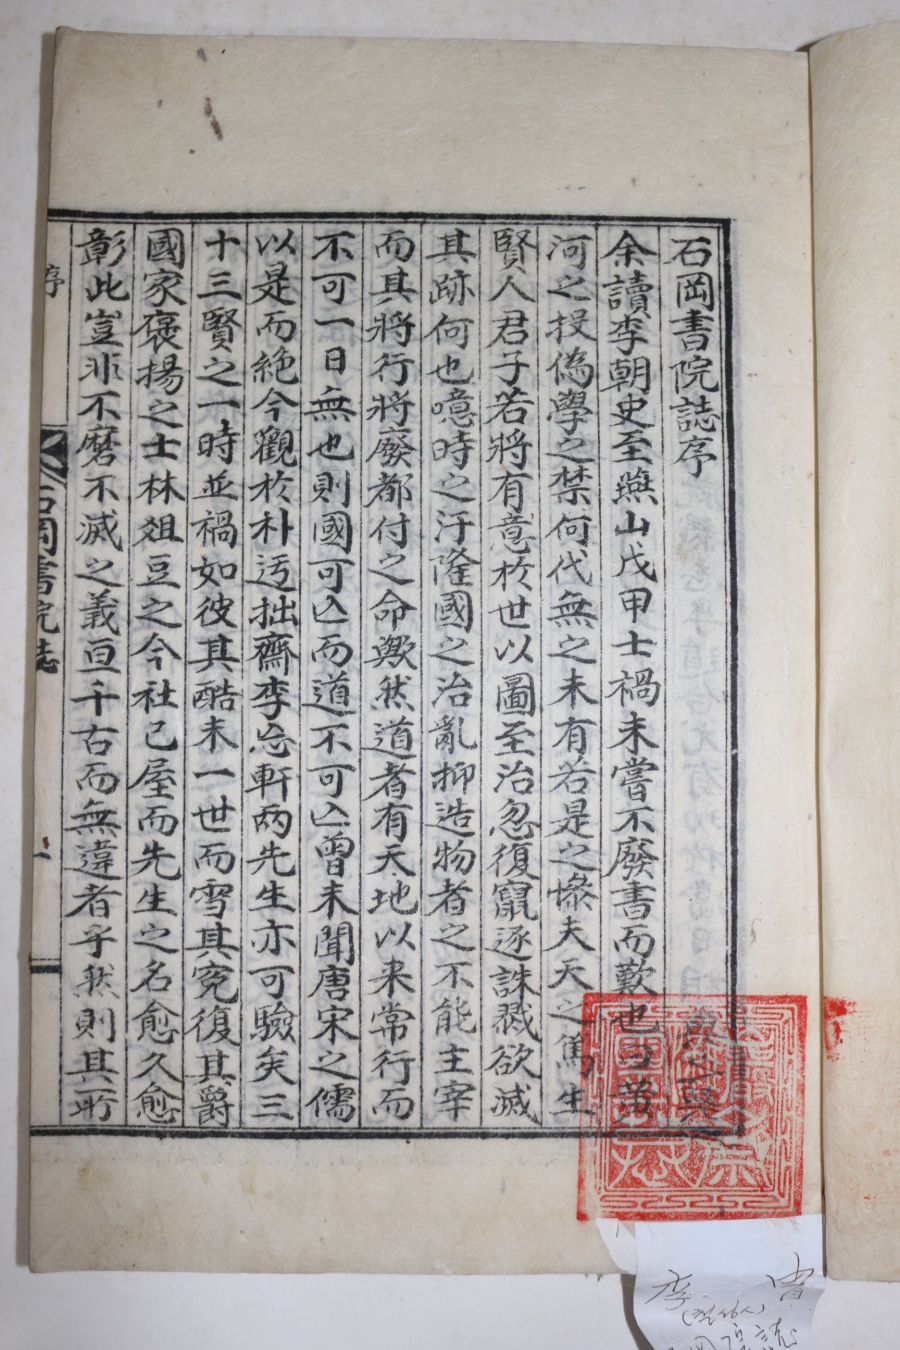 石岡書院誌序
余讀李朝史至燕山戊甲士禍未嘗不廢書而歎也
河之投偽學之禁何代無之未有若是之慘夫天之篤生
賢人君子若將有意於世以圖至治忽復竄逐誅戮欲滅
其跡何也噫時之汙隆國之治亂抑造物者之不能主宰
而其將行將廢都付之命歟然道者有天地以來常行而
不可一日無也則國可亡而道不可亡曾未聞唐宋之儒
以是而絶今觀於朴迃拙齋李忘軒兩先生亦可驗矣三
十三賢之一時並禍如彼其酷未一世而雪其冤復其爵
國家褒揚之士林俎豆之今社已屋而先生之名愈久愈
彰此豈非不磨不滅之義亘千古而無違者乎然則其所
序
石岡書院誌
一
李 胄